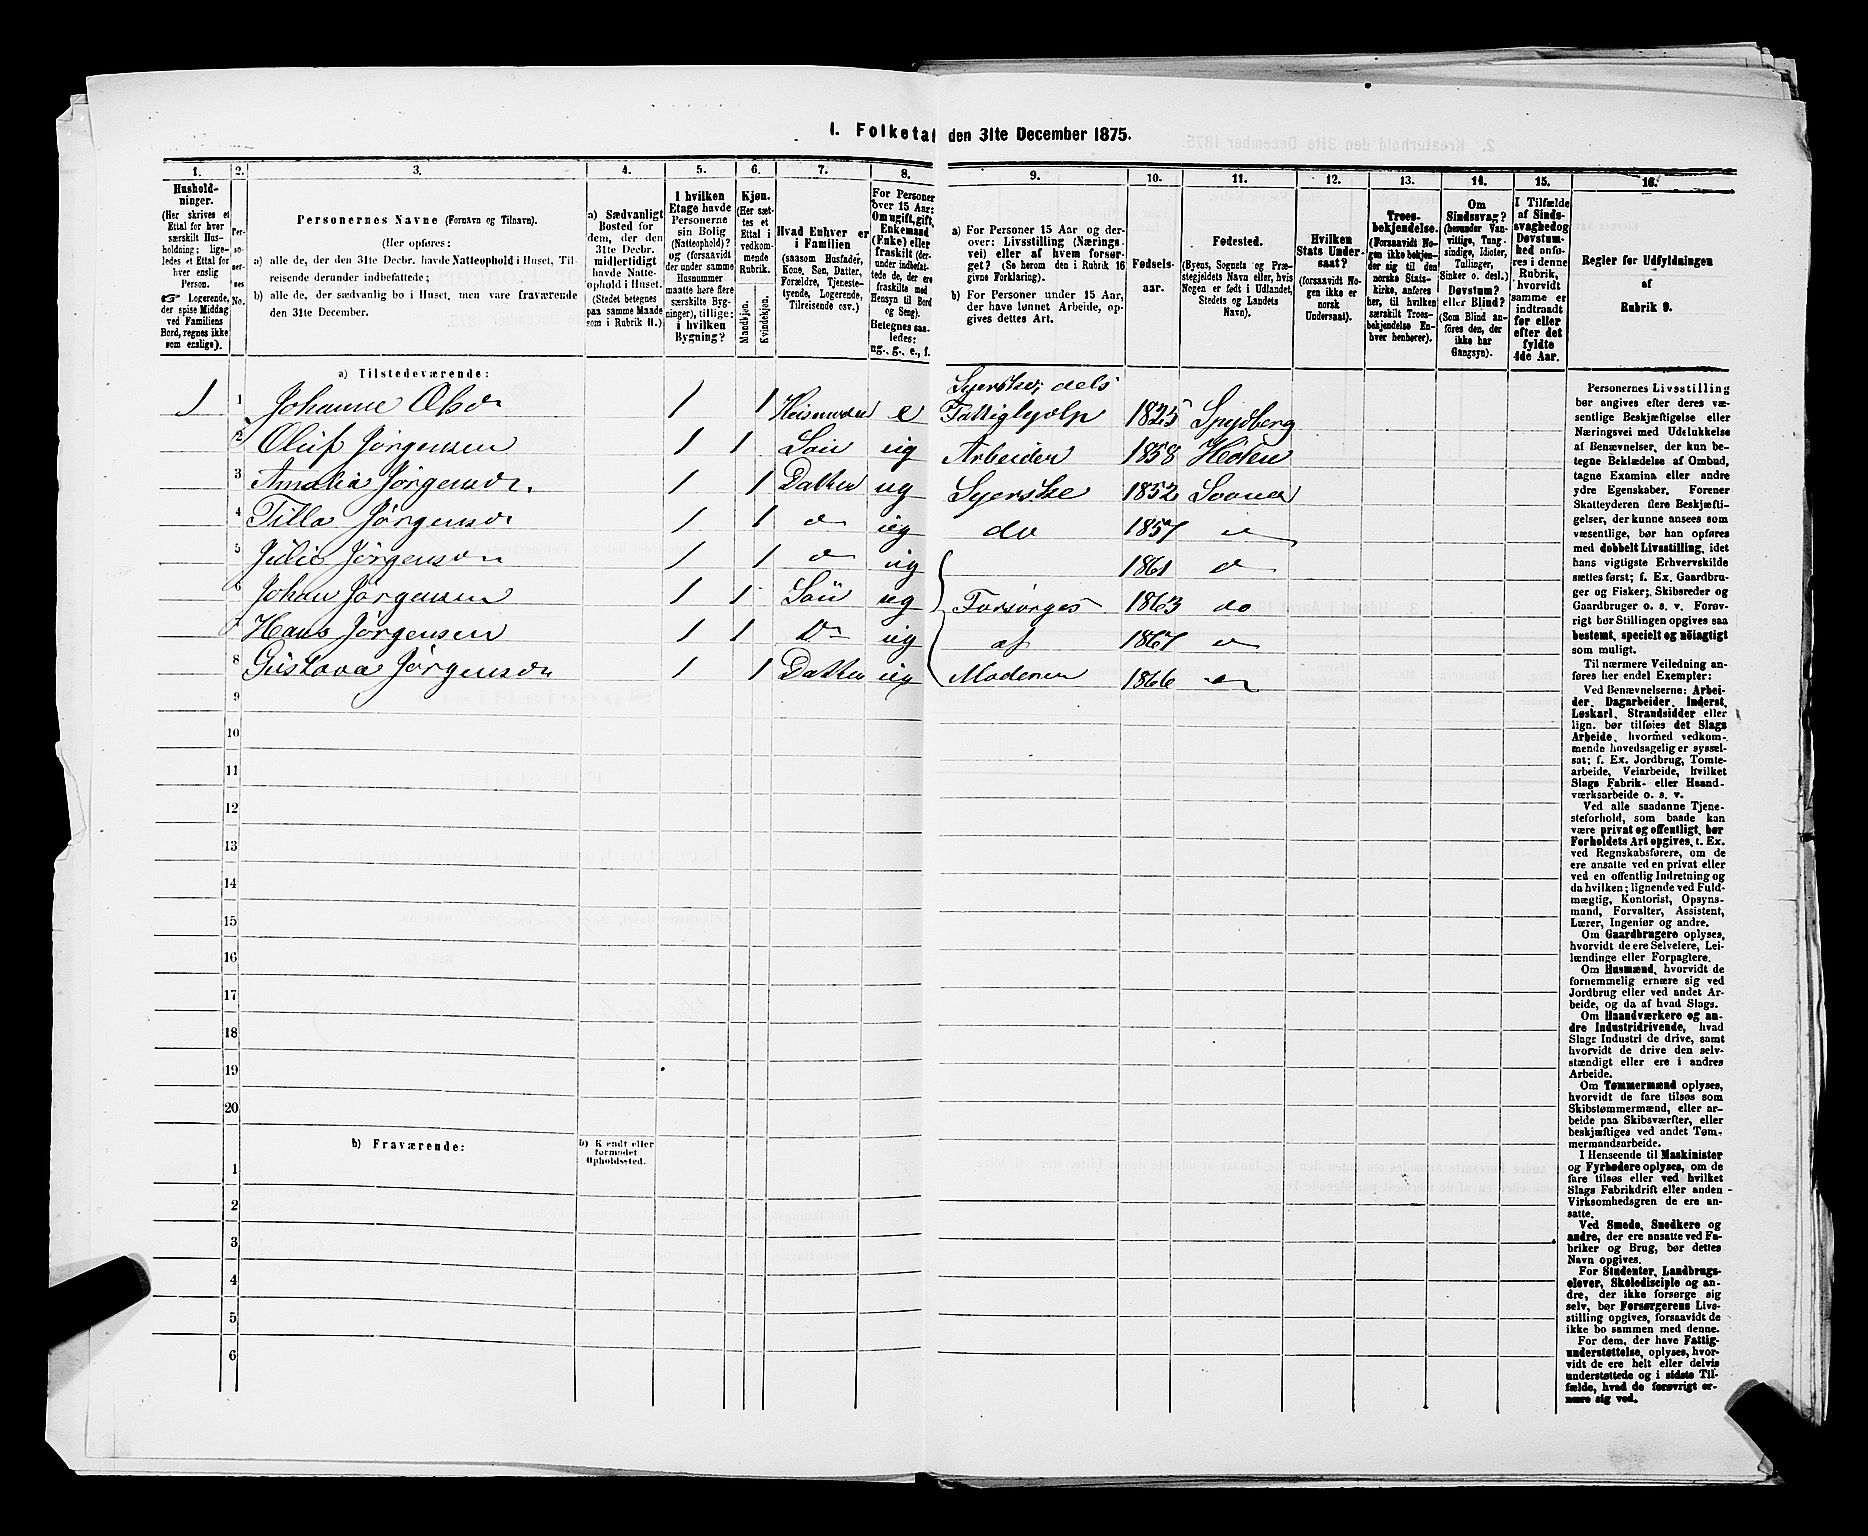 I. Folketal den 31te December 1875.
1. 2. 3. 4. 5. 6. 7. 8. 9. 10. 11. 12. 13. 14. 15. 16.
Hushold-
ninger.
(Her skrives et
Ettal for hver
særskilt Hus-
holdning; lige-
ledes et Ettal for
hver enslig
Person.
☞ Logerende,
der spise Middag
ved Familiens
Bord, regnes ikke
som enslige).
Per-
so-
ner-
nes
No.
Personernes Navne (Fornavn og Tilnavn).
(Her opføres:
a) alle de, der den 31te Decbr. havde Natteophold i Huset, Til-
reisende derunder indbefattede;
b) alle de, der sædvanlig bo i Huset, men vare fraværende
den 31te December.
a) Sædvanligt
Bosted for
dem, der den
31te Decbr.
midlertidigt
havde Natte-
ophold i Huset.
(Stedet betegnes
paa samme Maade
som i Rubrik 11.)
I hvilken
Etage havde
Personerne
sin Bolig
(Natteophold)?
og (forsaavidt
der under samme
Husnummer
maatte høre flere
særskilte Byg-
ninger), tillige:
i hvilken
Bygning?
Kjøn.
(Her sæt-
tes et
Ettal i
vedkom-
mende
Rubrik.
Mandkjøn.
Kvindekjøn.
Hvad Enhver er
i Familien
(saasom Husfader,
Kone, Søn, Datter,
Forældre, Tjeneste-
tyende, Logerende,
Tilreisende osv.)
For Personer
over 15 Aar:
Om ugift, gift,
Enkemand
(Enke) eller
fraskilt (der-
under indbefat-
tede de, der ere
fraskilte med
Hensyn til Bord
og Seng).
Betegnes saa-
ledes:
ug., g., e., f.
a) For Personer 15 Aar og der-
over: Livsstilling (Nærings-
vei) eller af hvem forsør-
get? (Se herom den i Rubrik 16
givne Forklaring).
b) For Personer under 15 Aar,
der have lønnet Arbeide, op-
gives dettes Art.
Fødsels-
aar.
Fødested.
(Byens, Sognets og Præ-
stegjeldets Navn eller, hvis
Nogen er født i Udlandet,
Stedets og Landets
Navn).
Hvilken
Stats Under-
saat?
(forsaavidt No-
gen ikke er
norsk
Undersaat).
Troes-
bekjendelse.
(Forsaavidt No-
gen ikke bekjen-
der sig til den
norske Stats-
kirke, anføres
her, til hvilken
særskilt Troes-
bekjendelse En-
hver henhører).
Om
Sindssvag?
(herunder Van-
vittige, Tung-
sindige, Idioter,
Tullinger,
Sinker o. desl.)
Døvstum?
eller Blind?
(Som Blind an-
føres den, der
ikke har
Gangsyn).
I Tilfælde
af Sinds-
svaghed og
Døvstum-
hed anfø-
res i denne
Rubrik,
hvorvidt
samme er
indtraadt
før eller
efter det
fyldte
4de Aar.
Regler for Udfyldningen
af
Rubrik 9.
a) Tilstedeværende:
1 1 Johanne Olsdr 1 1 Husmoder e Syerske, dels
Fattighjelp 1825 Spydberg
2 Oluf Jørgensen 1 1 Søn ug Arbeider 1858 Hølen
3 Amalia Jørgensdr. 1 1 Datter ug Syerske 1852 Soaner
4 Tilla Jørgensdr 1 1 do ug do 1857 do
5 Julie Jørgensdr 1 1 do ug 1861 do
6 Johan Jørgensen 1 1 Søn ug Forsørges 1863 do
7 Hans Jørgensen 1 1 Do ug af 1867 do
8 Gustava Jørgensdr 1 1 Datter ug Moderen 1866 do
9
10
11
12
13
14
15
16
17
18
19
20
b) Fraværende:
b) Kjendt eller
formodet
Opholdssted.
1
2
3
4
5
6
Personernes Livsstilling
bør angives efter deres væ-
sentlige Beskjæftigelse eller
Næringsvei med Udelukkelse
af Benævnelser, der kun be-
tegne Beklædelse af Ombud,
tagne Examina eller andre
ydre Egenskaber. Forener
Skatteyderen flere Beskjæfti-
gelser, der kunne ansees som
væsentlige, bør han opføres
med dobbelt Livsstilling, idet
hans vigtigste Erhvervskilde
sættes først; f. Ex. Gaardbru-
ger og Fisker; Skibsreder og
Gaardbruger o. s. v. Forøv-
rigt bør Stillingen opgives saa
bestemt, specielt og nöiagtigt
som muligt.
Til nærmere Veiledning an-
føres her endel Exempler:
Ved Benævnelserne: Arbei-
der, Dagarbeider, Inderst,
Løskarl, Strandsidder eller
lign. bør tilføies det Slags
Arbeide, hvormed vedkom-
mende hovedsagelig er syssel-
sat; f. Ex. Jordbrug, Tomte-
arbeide, Veiarbeide, hvilket
Slags Fabrik- eller Haand-
værksarbeide o. s. v.
Ved alle saadanne Tjene-
steforhold, som baade kan
være privat og offentligt, bør
Forholdets Art opgives, t. Ex.
ved Regnskabsførere, om de
ere ansatte ved en privat eller
ved en offentlig Indretning og
da hvilken; lignende ved Fuld-
mægtig, Kontorist, Opsyns-
mand, Forvalter, Assistent,
Lærer, Ingeniør og andre.
Om Gaardbrugere oplyses,
hvorvidt de ere Selveiere, Lei-
lændinge eller Forpagtere.
Om Husmænd, hvorvidt de
fornemmelig ernære sig ved
Jordbrug eller ved andet Ar-
beide, og da af hvad Slags.
Om Haandværkere og an-
dre Industridrivende, hvad
Slags Industri de drive, samt
hvorvidt de drive den selv-
stændigt eller ere i andres
Arbeide.
Om Tømmermænd oplyses,
hvorvidt de fare tilsøs som
Skibstømmermænd, eller ar-
beide paa Skibsværfter, eller
beskjæftiges ved andet Tøm-
mermandsarbeide.
I Henseende til Maskinister
og Fyrbødere oplyses, om de
fare tilsøs eller ved hvilket
Slags Fabrikdrift eller anden
Virksomhedsgren de ere an-
satte.
Ved Smede, Snedkere og
andre, der ere ansatte ved Fa-
briker og Brug, bør dettes
Navn opgives.
For Studenter, Landbrugs-
elever, Skoledisciple og an-
dre, der ikke forsørge sig
selv, bør Forsørgerens Livs-
stilling opgives, forsaavidt de
ikke bo sammen med denne.
For dem, der have Fattig-
understøttelse, oplyses, hvor-
vidt de ere helt eller delvis
understøttede og i sidste Til-
fælde, hvad de forøvrigt er-
nære sig ved.